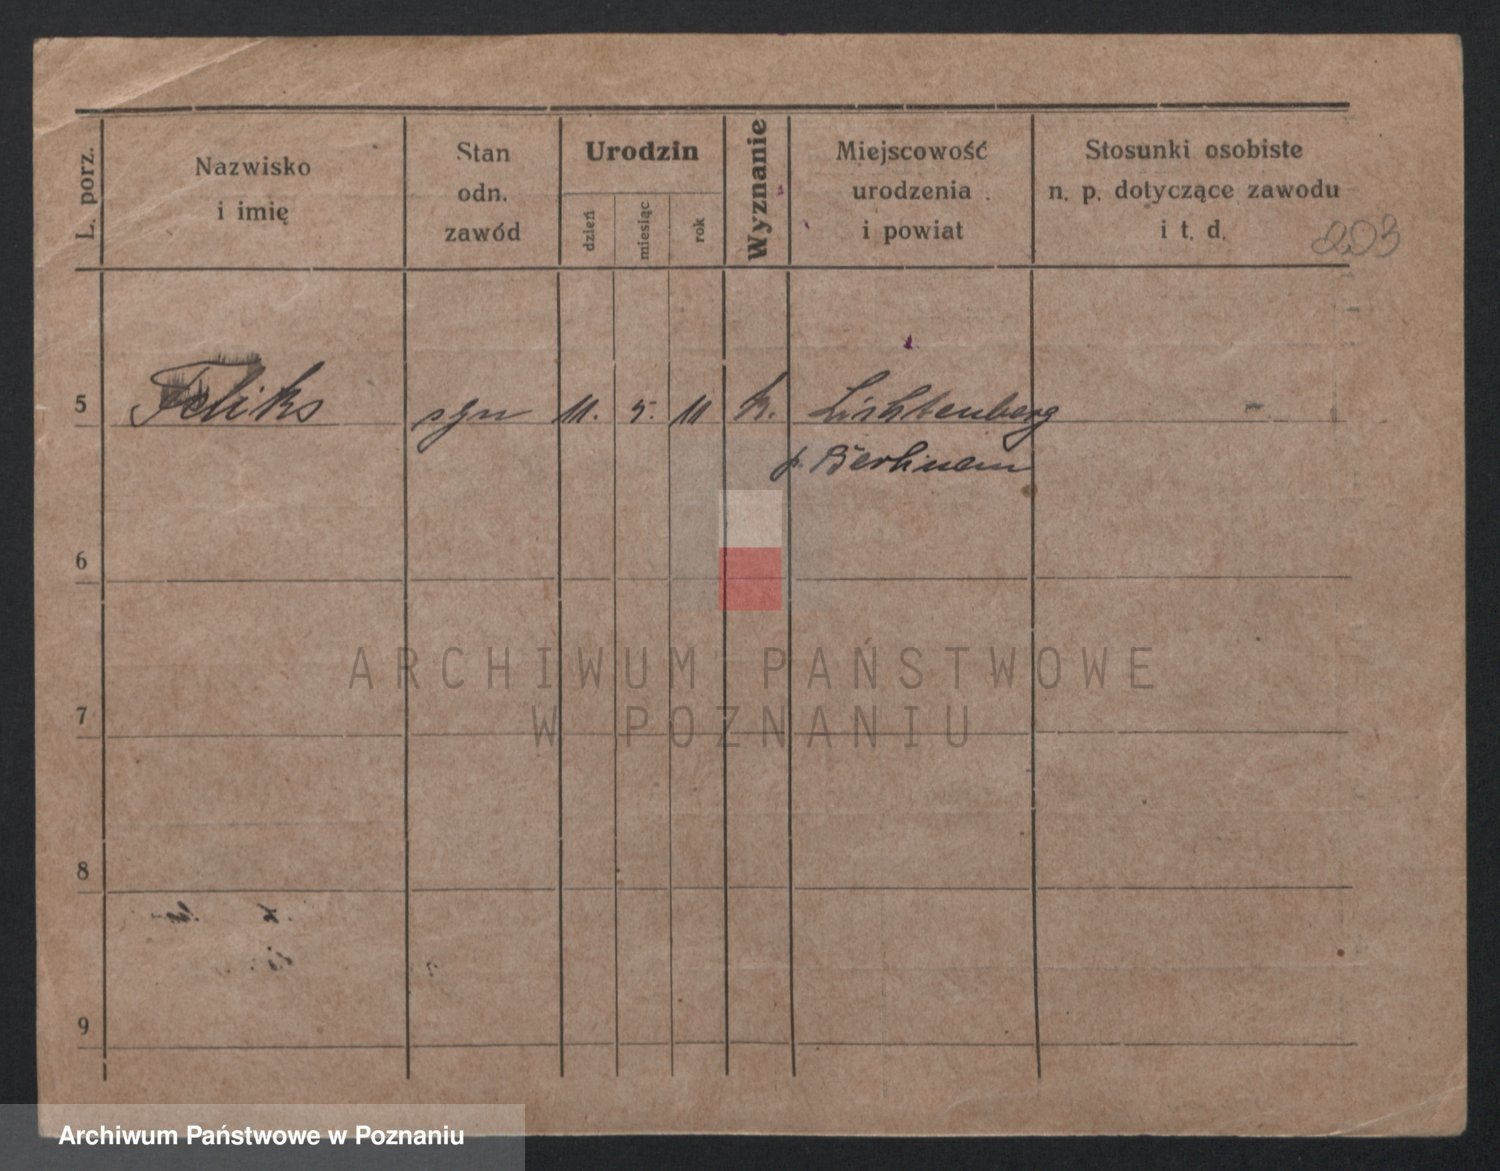 L. porz.
Nazwisko
i imię
Stan
odn.
zawód
Urodzin
dzień
miesiąc
rok
Wyznanie
Miejscowość
urodzenia
i powiat
Stosunki osobiste
n. p. dotyczące zawodu
i t. d.
203
5 Feliks syn 11. 5. 11 k. Lichtenberg -
p. Berlinem
6
7
8
9
ARCHIWUM PAŃSTWOWE
W POZNANIU
Archiwum Państwowe w Poznaniu